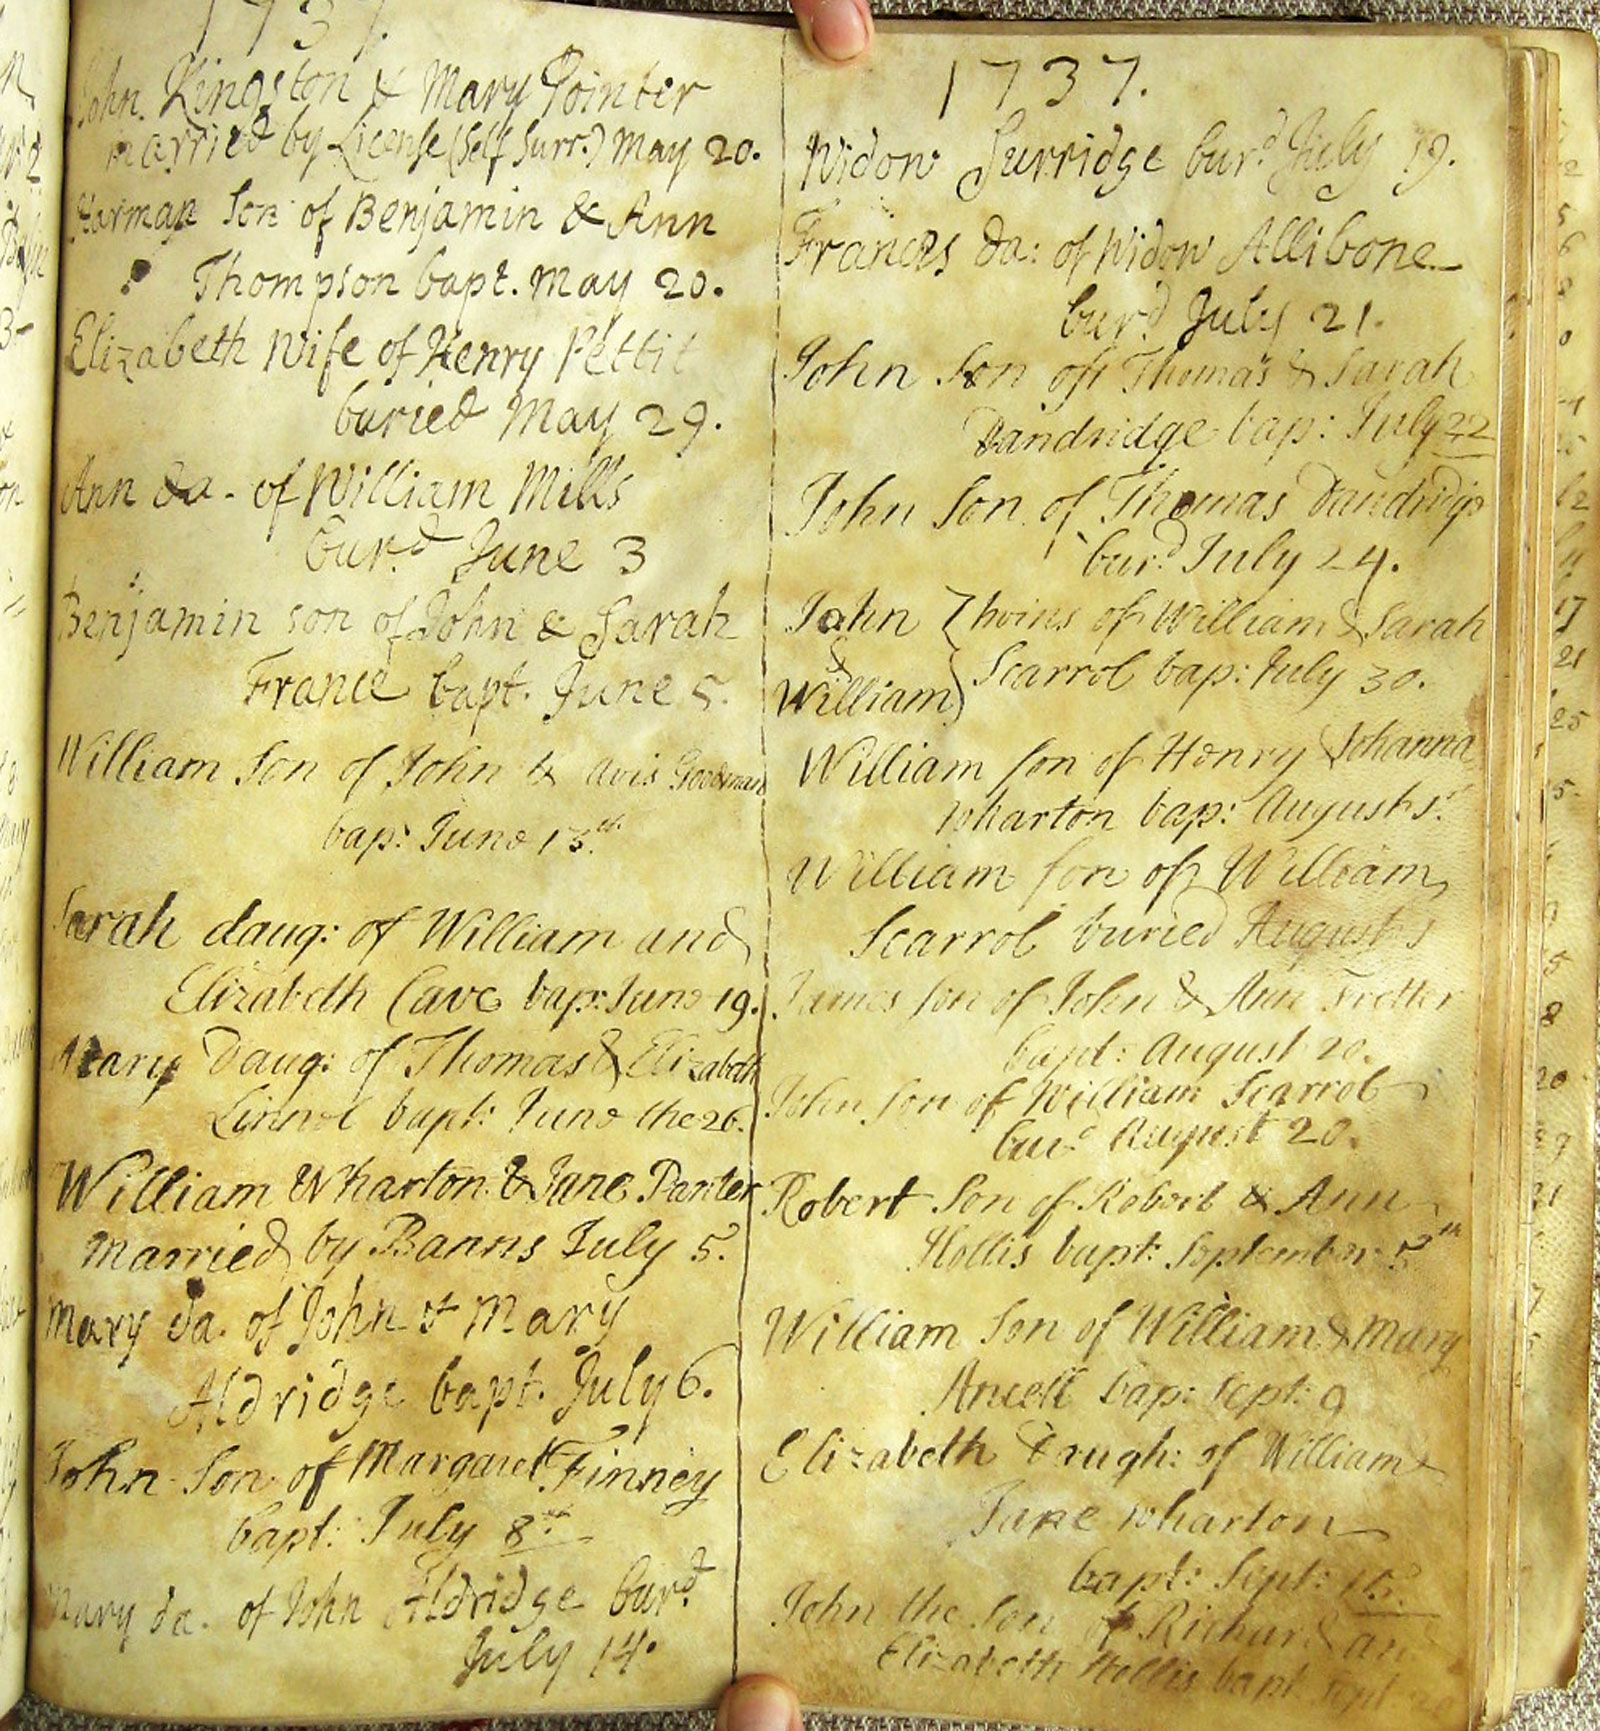 1737.
John Kingston & Mary Pointer
married by License (Self Surr.) May 20.
Harman Son of Benjamin & Ann
Thompson bapt. May 20.
Elizabeth Wife of Henry Pettit
buried May 29.
Ann da. of William Mills
bur.d June 3
Benjamin son of John & Sarah
France bapt. June 5.
William Son of John & Avis Goodman
bap: June 13th.
Sarah daug: of William and
Elizabeth Cave bap: June 19.
Mary Daug: of Thomas & Elizabeth
Linnol bapt: June the 26.
William Wharton & Jane Panter
Married by Banns July 5.
Mary da. of John & Mary
Aldridge bapt. July 6.
John Son of Margaret Finney
bapt: July 8th
Mary da. of John Aldridge bur.d
July 14.
1737.
Widow Surridge bur.d July 19.
Frances da: of Widow Allibone
bur.d July 21.
John Son of Thomas & Sarah
Dandridge bap: July 22
John Son of Thomas Dandridge
bur.d July 24.
John } twins of William & Sarah
&
William } Scarrol bap: July 30.
William son of Henry & Johanna
Wharton bap: August 1st
William son of William
Scarrol buried August
James son of John & Ann Fretter
bapt: August 20.
John son of William Scarrol
bur.d August 20.
Robert Son of Robert & Ann
Hollis bapt: September 5th
William Son of William & Mary
Ancell bap: Sept: 9
Elizabeth Daugh: of William &
Jane Wharton
bapt: Sept: 15.
John the Son of Richard an
Elizabeth Hollis bapt Sept